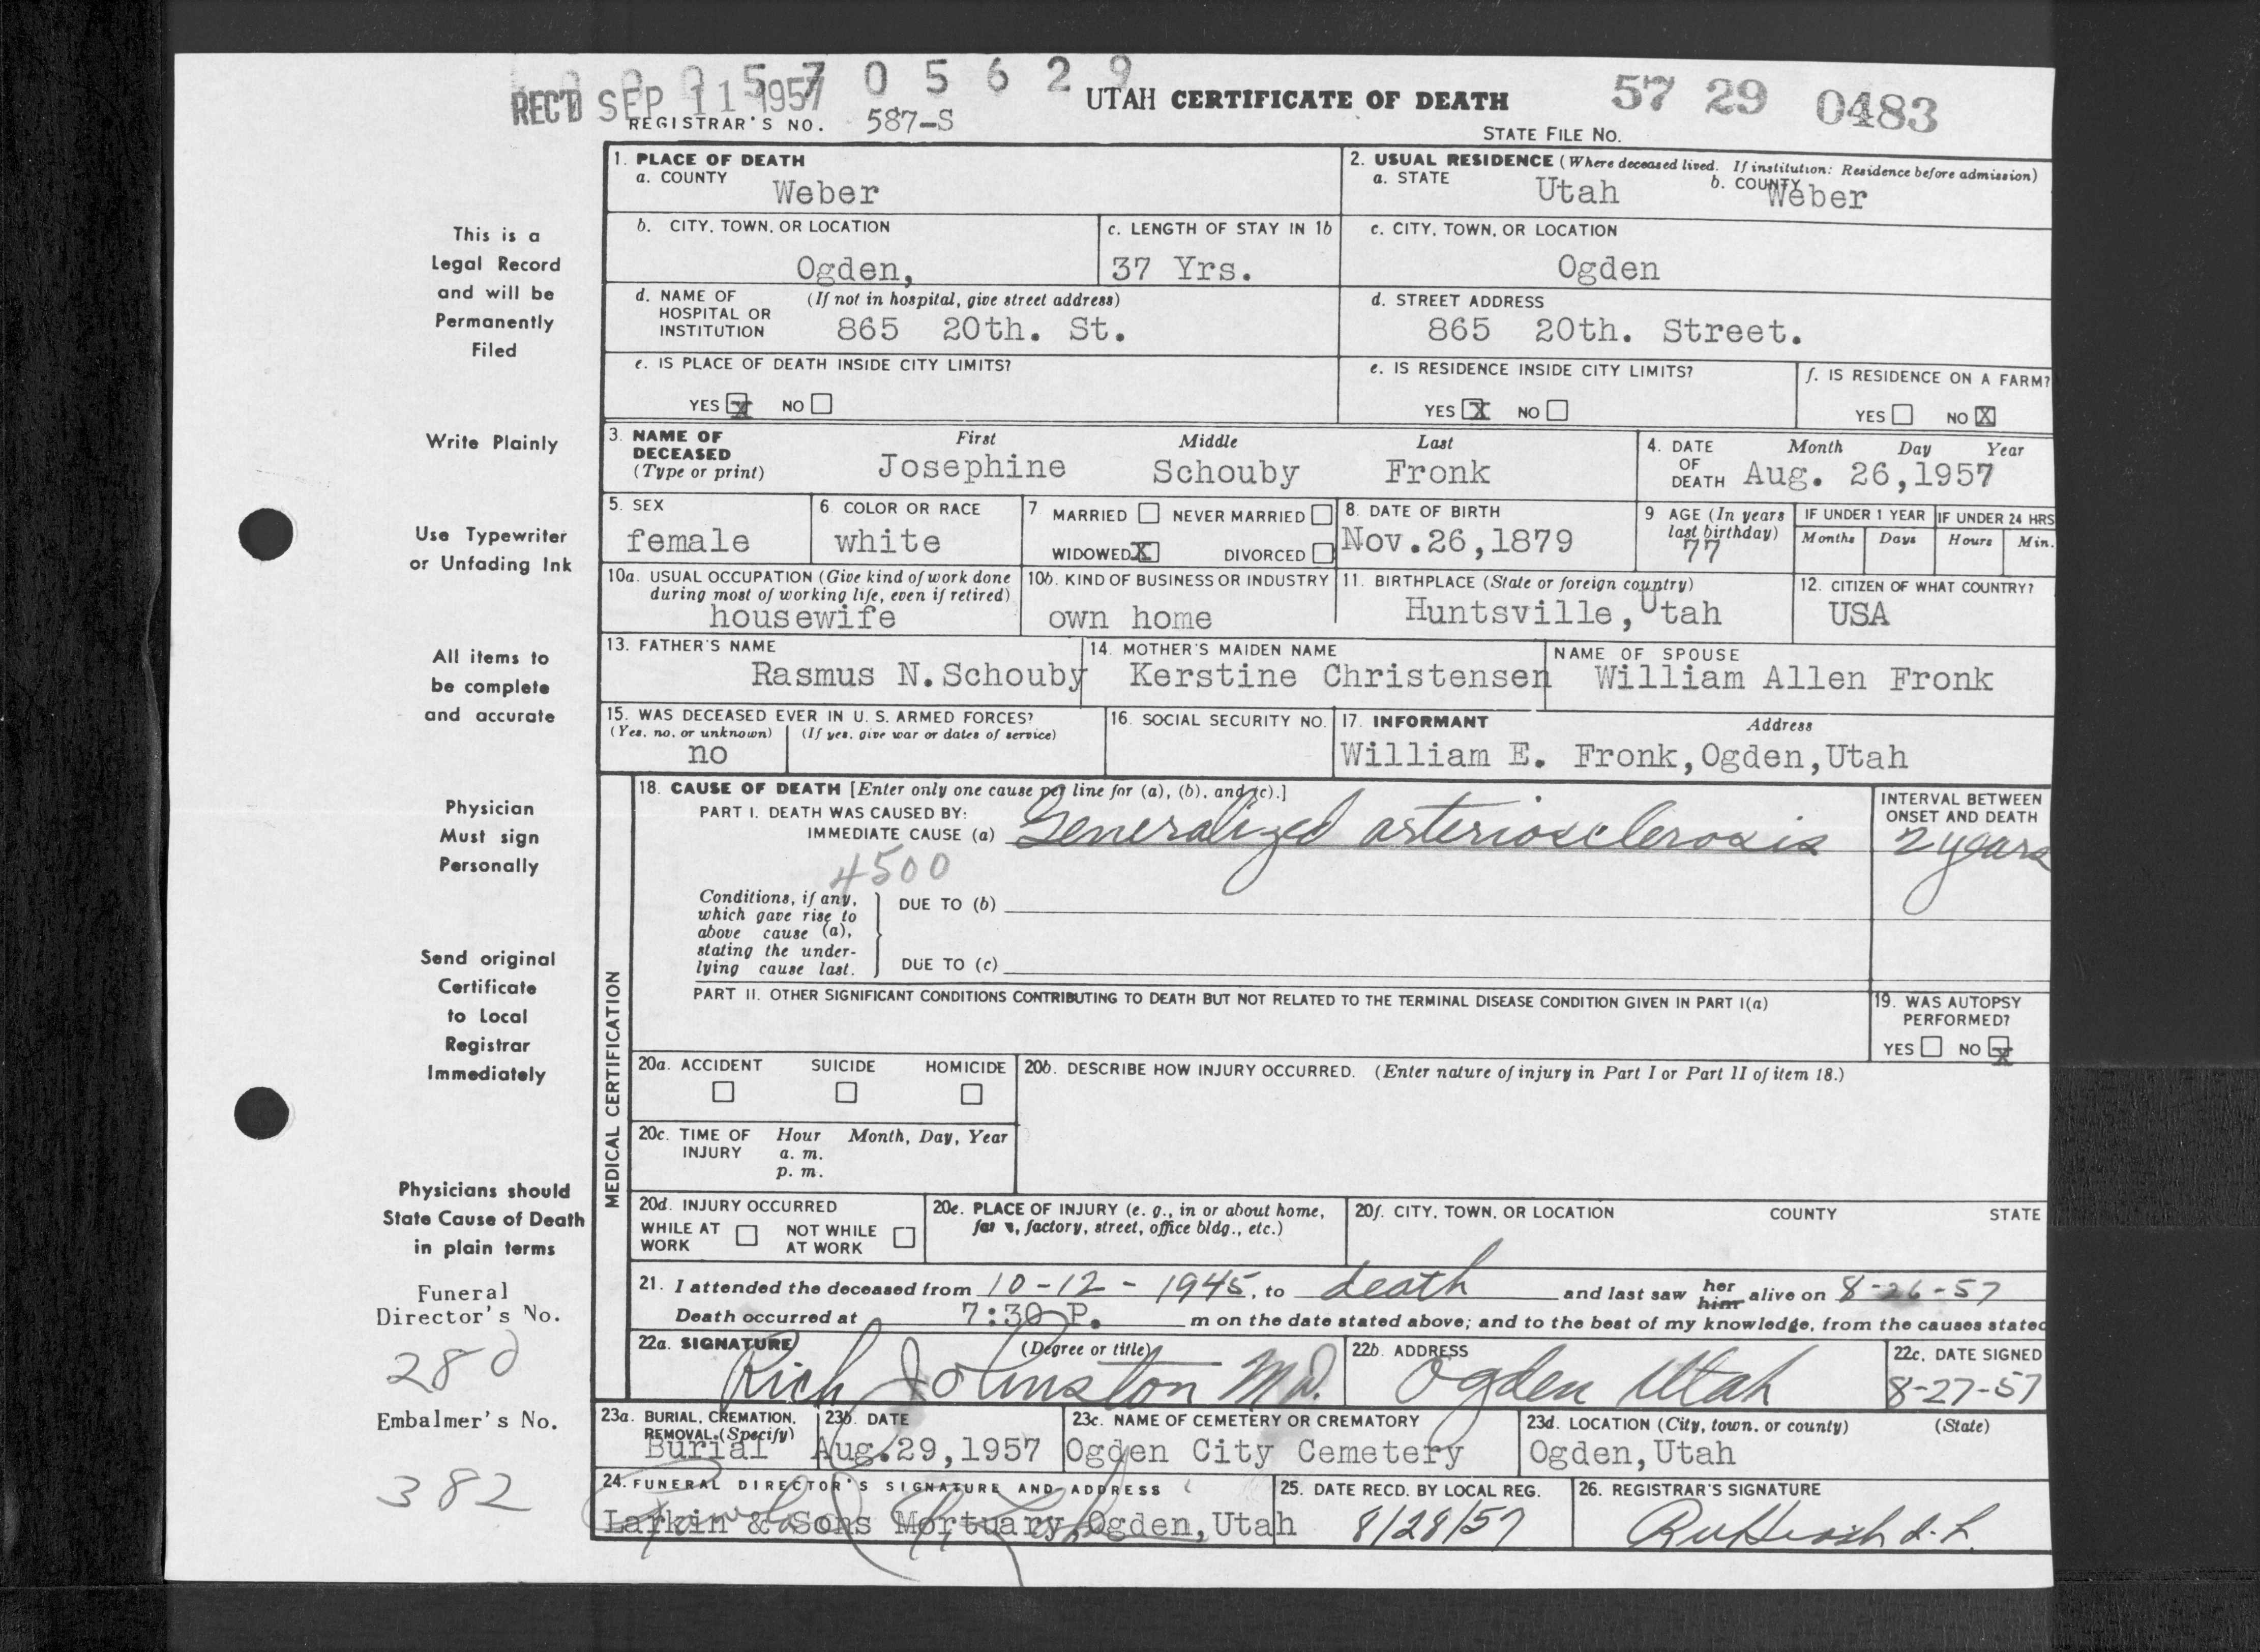 0 0 0 5 7 0 5 6 2 9
REC'D SEP 11 1957
UTAH CERTIFICATE OF DEATH
57 29 0483
REGISTRAR'S NO. 587-S
STATE FILE NO.
1. PLACE OF DEATH
a. COUNTY Weber
2. USUAL RESIDENCE (Where deceased lived. If institution: Residence before admission)
a. STATE Utah b. COUNTY Weber
b. CITY, TOWN, OR LOCATION Ogden,
c. LENGTH OF STAY IN 1b 37 Yrs.
c. CITY, TOWN, OR LOCATION Ogden
d. NAME OF HOSPITAL OR INSTITUTION (If not in hospital, give street address) 865 20th. St.
d. STREET ADDRESS 865 20th. Street.
e. IS PLACE OF DEATH INSIDE CITY LIMITS?
YES X NO
e. IS RESIDENCE INSIDE CITY LIMITS?
YES X NO
f. IS RESIDENCE ON A FARM?
YES NO X
3. NAME OF DECEASED (Type or print)
First Middle Last
Josephine Schouby Fronk
4. DATE OF DEATH Month Day Year
Aug. 26,1957
5. SEX female
6. COLOR OR RACE white
7 MARRIED NEVER MARRIED
WIDOWED X DIVORCED
8. DATE OF BIRTH Nov.26,1879
9 AGE (In years last birthday) 77
IF UNDER 1 YEAR Months Days
IF UNDER 24 HRS Hours Min.
10a. USUAL OCCUPATION (Give kind of work done during most of working life, even if retired) housewife
10b. KIND OF BUSINESS OR INDUSTRY own home
11. BIRTHPLACE (State or foreign country) Huntsville,Utah
12. CITIZEN OF WHAT COUNTRY? USA
13. FATHER'S NAME Rasmus N.Schouby
14. MOTHER'S MAIDEN NAME Kerstine Christensen
NAME OF SPOUSE William Allen Fronk
15. WAS DECEASED EVER IN U. S. ARMED FORCES?
(Yes, no, or unknown) (If yes, give war or dates of service)
no
16. SOCIAL SECURITY NO.
17. INFORMANT Address
William E. Fronk,Ogden,Utah
MEDICAL CERTIFICATION
18. CAUSE OF DEATH [Enter only one cause per line for (a), (b), and (c).]
PART I. DEATH WAS CAUSED BY:
IMMEDIATE CAUSE (a) Generalized arteriosclerosis
INTERVAL BETWEEN ONSET AND DEATH
2 years
4500
Conditions, if any, which gave rise to above cause (a), stating the underlying cause last.
DUE TO (b)
DUE TO (c)
PART II. OTHER SIGNIFICANT CONDITIONS CONTRIBUTING TO DEATH BUT NOT RELATED TO THE TERMINAL DISEASE CONDITION GIVEN IN PART I(a)
19. WAS AUTOPSY PERFORMED?
YES NO X
20a. ACCIDENT SUICIDE HOMICIDE
20b. DESCRIBE HOW INJURY OCCURRED. (Enter nature of injury in Part I or Part II of item 18.)
20c. TIME OF INJURY Hour Month, Day, Year
a. m.
p. m.
20d. INJURY OCCURRED
WHILE AT WORK NOT WHILE AT WORK
20e. PLACE OF INJURY (e. g., in or about home, farm, factory, street, office bldg., etc.)
20f. CITY, TOWN, OR LOCATION COUNTY STATE
21. I attended the deceased from 10-12-1945, to death and last saw her him alive on 8-26-57
Death occurred at 7:30 P. m on the date stated above; and to the best of my knowledge, from the causes stated
22a. SIGNATURE (Degree or title)
Rich Johnston M.D.
22b. ADDRESS Ogden Utah
22c. DATE SIGNED 8-27-57
23a. BURIAL, CREMATION, REMOVAL (Specify) Burial
23b. DATE Aug.29,1957
23c. NAME OF CEMETERY OR CREMATORY Ogden City Cemetery
23d. LOCATION (City, town, or county) (State) Ogden,Utah
24. FUNERAL DIRECTOR'S SIGNATURE AND ADDRESS
Larkin & Sons Mortuary,Ogden,Utah
25. DATE RECD. BY LOCAL REG. 8/28/57
26. REGISTRAR'S SIGNATURE
This is a
Legal Record
and will be
Permanently
Filed
Write Plainly
Use Typewriter
or Unfading Ink
All items to
be complete
and accurate
Physician
Must sign
Personally
Send original
Certificate
to Local
Registrar
Immediately
Physicians should
State Cause of Death
in plain terms
Funeral
Director's No.
280
Embalmer's No.
382